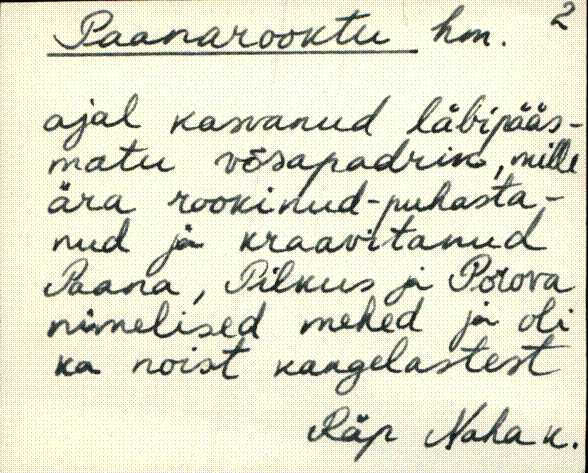 Paanarooktu hm. 2
ajal kasvanud läbipääs-
matu võsapadrik, mille
ära rookinud-puhasta-
nud ja kraavitanud
Paana, Pilkus ja Porova
nimelised mehed ja oli
ka noist kangelastest
Räp Naha k.